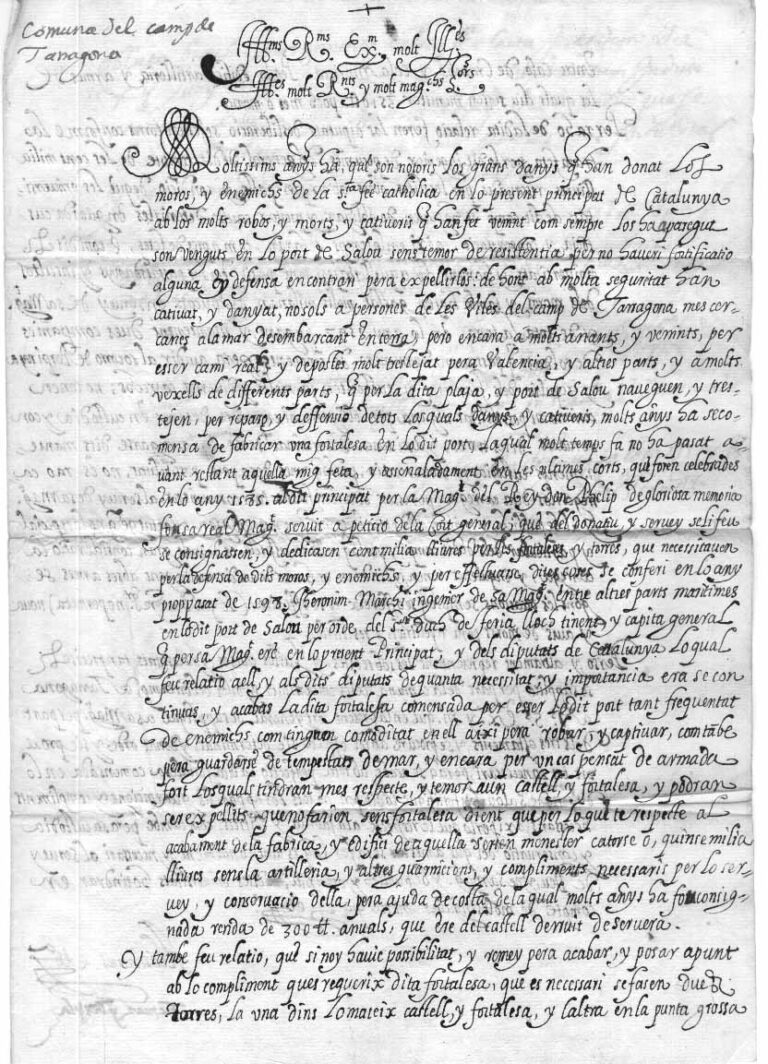 Comuna del camp de
Tarragona
Illms Rms Exm molt Illes
Illes molt Rnts y molt maghs Sors
Moltissims anys ha, que son notoris los grans danys q han donat los
moros, y enemichs de la sta fee catholica en lo present principat de Catalunya
ab los molts robos, y morts, y cativeris q han fet venint com sempre los ha aparegut
son venguts en lo port de Salou sens temor de resistentia per no haveri fortificatio
alguna ey defensa encontran pera expellirlos: de hont ab molta seguritat han
cativat, y danyat, no sols a persones de les viles del camp de Tarragona mes cer-
canes ala mar desombarcant en terra, pero encara a molts anants, y venints, per
esser cami real, y de postes molt trestejat pera Valencia, y altres parts, y a molts
vexells de differents parts, q per la dita plaja, y port de Salou naveguen, y tres-
tejen: per reparo, y deffensio de tots los quals danys, y cativeris, molts anys ha se co-
mensa de fabricar una fortalesa en lo dit port, la qual molt temps fa no ha pasat a-
vant restant aquella mig feta, y desenaladament en les ultimes corts, que foren celebrades
en lo any 1585. al dit principat per la Mag. del Rey don Phelip de gloriosa memoria
fonsa real Mag. servit a petitio de la Cort general, que del donatiu, y servey se li feu
se consignasen, y dedicasen cent milia lliures per les fortaleses y torres, que necessitaven
per la defensa de dits moros, y enemichs, y per effectuar dites coses se conferi en lo any
prop pasat de 1598. Jheronim Marchi ingenier de sa Mag. entre altres parts maritimes
en lo dit port de Salou per orde, del sr duch de feria lloch tinent, y capita general
q per sa Mag. ere en lo present Principat, y dels diputats de Catalunya lo qual
feu relatio a ell, y als dits diputats de quanta necessitat, y importancia era se con
tinuas, y acabas la dita fortalesa comensada per esser lo dit port tant frequentat
de enemichs, com tinguen comoditat en ell aixi pera robar, y captivar, com tabe
pera guardarse de tempestats de mar, y encara per un cas pensat de armada
fort los quals tindran mes respecte, y temor a un castell, y fortalesa, y podran
ser expellits que no farien, sens fortalesa dient que per lo que te respecte al
acabament de la fabrica, y edifici de aquella serien menester catorse o, quinse milia
lliures sens la artilleria, y altres guarnicions, y compliments necessaris per lo ser-
vey, y conservacio della, pera ajuda de costa de la qual molts anys ha fou consig-
nada renda de 300 ll. anuals, que ere del castell derruit de servera.
Y tambe feu relatio, que si noy havie possibilitat, y remey pera acabar, y posar apunt
ab lo compliment ques requerix dita fortalesa, que es necessari se fasen dues
Torres, la una dins lo mateix castell, y fortalesa, y laltra en la punta grossa